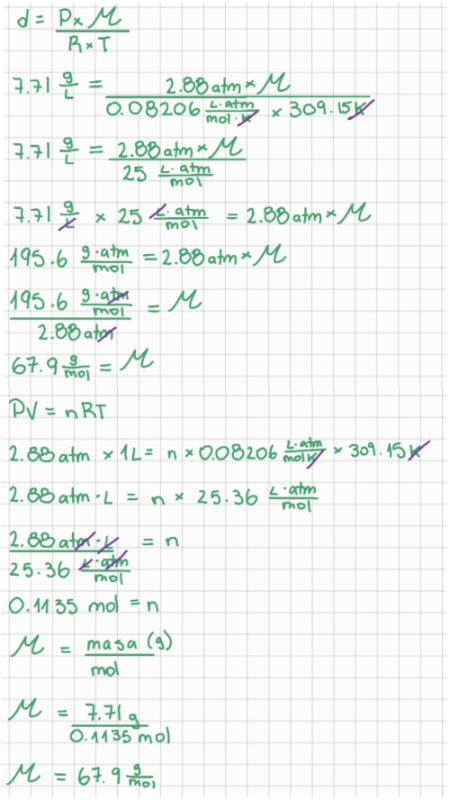 d = P×M / R×T
7.71 g/L = 2.88 atm × M / 0.08206 L·atm/mol·K × 309.15K
7.71 g/L = 2.88 atm × M / 25 L·atm/mol
7.71 g/L × 25 L·atm/mol = 2.88 atm × M
195.6 g·atm/mol = 2.88 atm × M
195.6 g·atm/mol / 2.88 atm = M
67.9 g/mol = M
PV = nRT
2.88 atm × 1L = n × 0.08206 L·atm/molK × 309.15K
2.88 atm·L = n × 25.36 L·atm/mol
2.88 atm·L / 25.36 L·atm/mol = n
0.1135 mol = n
M = masa (g) / mol
M = 7.71 g / 0.1135 mol
M = 67.9 g/mol